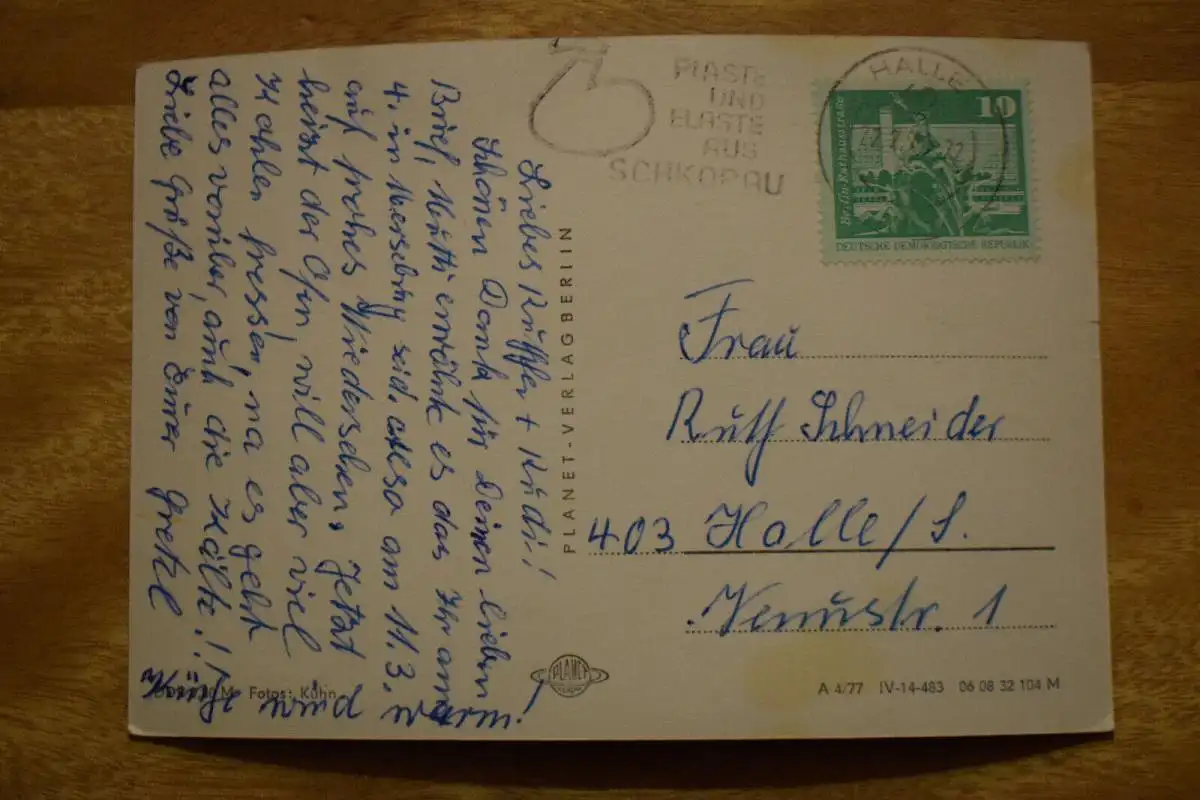 Liebes Ruffke + Rudi!!
Schönen Dank für Deinen lieben
Brief, Mutti erwähnte es das Ihr am
4. in Merseburg seid. Also am 11.3.
auf frohes Wiedersehen. Jetzt
heizt der Ofen, will aber viel
Kohlen fressen, na es geht
alles vorüber, auch die Kälte!
Liebe Grüße von Eurer Gretel
wird warm!
PLASTE
UND
ELASTE
AUS
SCHKOPAU
HALLE
10
Berlin, Rathausstraße
DEUTSCHE DEMOKRATISCHE REPUBLIK
PLANET-VERLAG BERLIN
Frau
Ruth Schneider
403 Halle/S.
Venusstr. 1
Fotos: Kühn
PLANET
A 4/77 IV-14-483 06 08 32 104 M